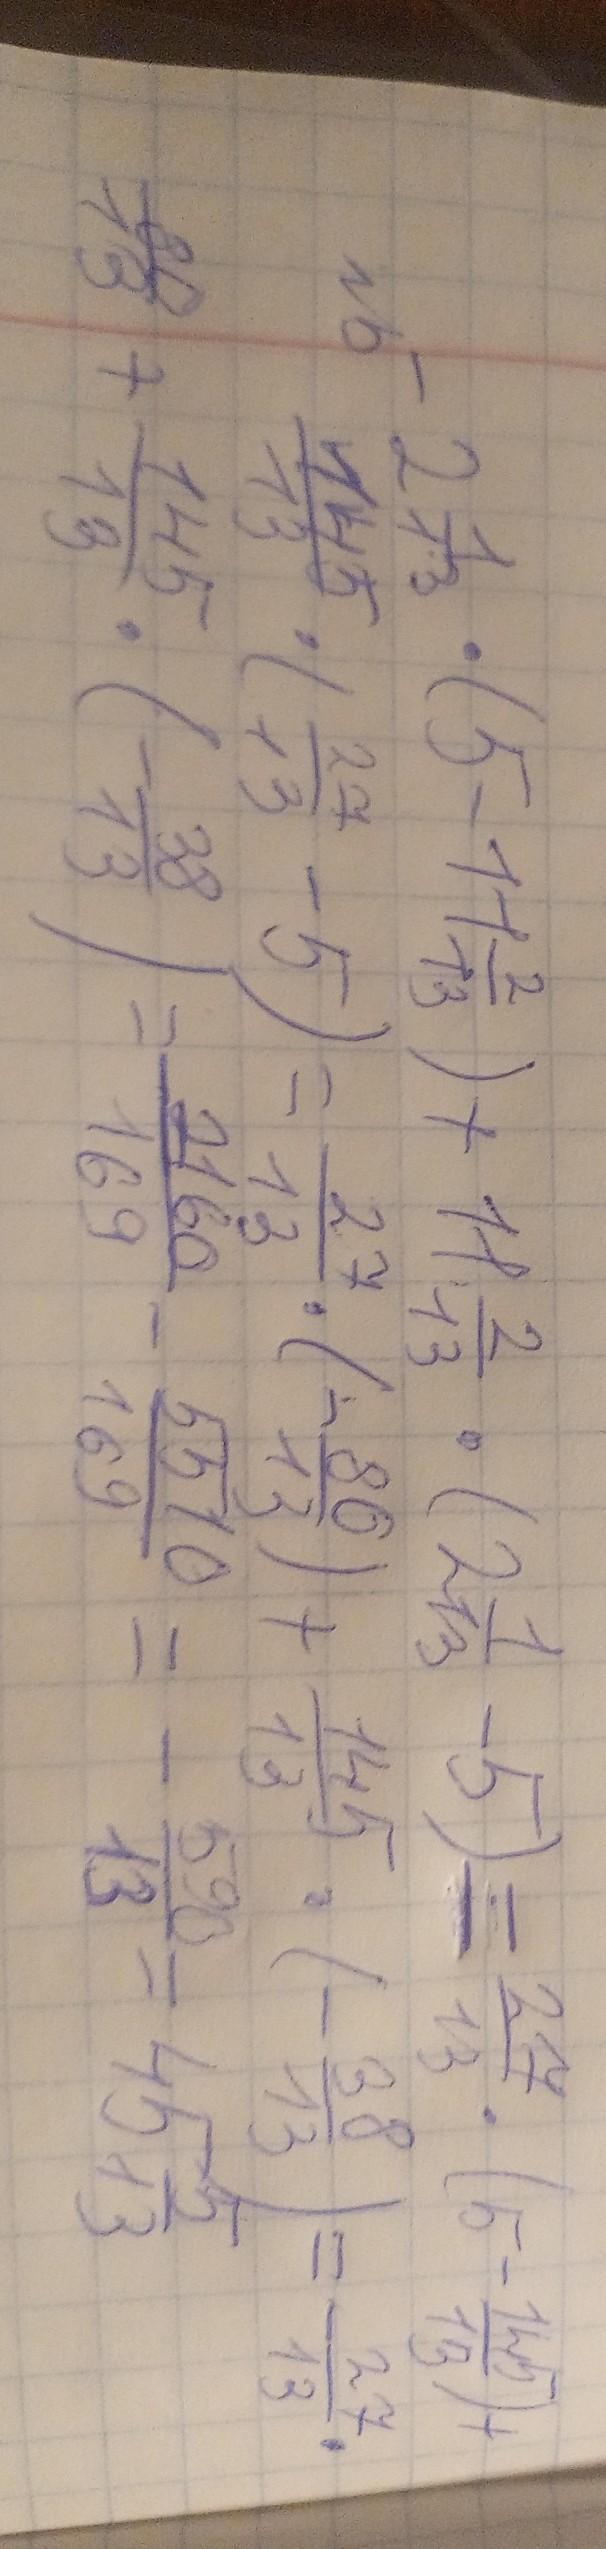 - 2 1/13 · (5 - 11 2/13) + 11 2/13 · (2 1/13 - 5) = 27/13 · (5 - 145/13) +
145/13 · (27/13 - 5) = 27/13 · (- 80/13) + 145/13 · (- 38/13) = - 27/13 ·
80/13 + 145/13 · (- 38/13) = 2160/169 - 5510/169 = - 590/13 = 45 5/13